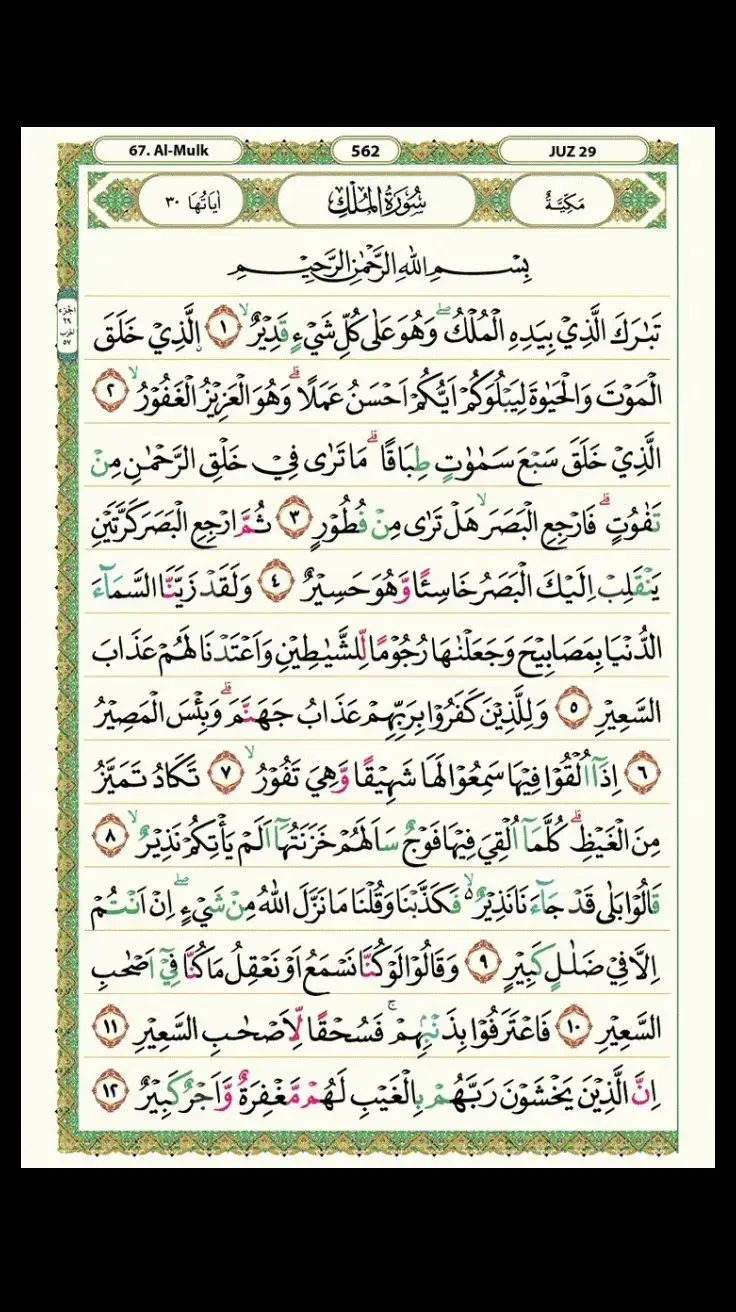 67. Al-Mulk 562 JUZ 29
مَكِّيَّةٌ سُوْرَةُ الْمُلْكِ اٰيَاتُهَا ٣٠
بِسْمِ اللّٰهِ الرَّحْمٰنِ الرَّحِيْمِ
الجزء
٢٩
الحزب
٥٧
تَبٰرَكَ الَّذِيْ بِيَدِهِ الْمُلْكُ ۖ وَهُوَ عَلٰى كُلِّ شَيْءٍ قَدِيْرٌ ۙ ١ ۨالَّذِيْ خَلَقَ
الْمَوْتَ وَالْحَيٰوةَ لِيَبْلُوَكُمْ اَيُّكُمْ اَحْسَنُ عَمَلًا ۗ وَهُوَ الْعَزِيْزُ الْغَفُوْرُ ۙ ٢
الَّذِيْ خَلَقَ سَبْعَ سَمٰوٰتٍ طِبَاقًا ۗ مَا تَرٰى فِيْ خَلْقِ الرَّحْمٰنِ مِنْ
تَفٰوُتٍ ۗ فَارْجِعِ الْبَصَرَ ۙ هَلْ تَرٰى مِنْ فُطُوْرٍ ٣ ثُمَّ ارْجِعِ الْبَصَرَ كَرَّتَيْنِ
يَنْقَلِبْ اِلَيْكَ الْبَصَرُ خَاسِئًا وَّهُوَ حَسِيْرٌ ٤ وَلَقَدْ زَيَّنَّا السَّمَاۤءَ
الدُّنْيَا بِمَصَابِيْحَ وَجَعَلْنٰهَا رُجُوْمًا لِّلشَّيٰطِيْنِ وَاَعْتَدْنَا لَهُمْ عَذَابَ
السَّعِيْرِ ٥ وَلِلَّذِيْنَ كَفَرُوْا بِرَبِّهِمْ عَذَابُ جَهَنَّمَ ۗ وَبِئْسَ الْمَصِيْرُ
٦ اِذَآ اُلْقُوْا فِيْهَا سَمِعُوْا لَهَا شَهِيْقًا وَّهِيَ تَفُوْرُ ۙ ٧ تَكَادُ تَمَيَّزُ
مِنَ الْغَيْظِ ۗ كُلَّمَآ اُلْقِيَ فِيْهَا فَوْجٌ سَاَلَهُمْ خَزَنَتُهَآ اَلَمْ يَأْتِكُمْ نَذِيْرٌ ۙ ٨
قَالُوْا بَلٰى قَدْ جَاۤءَنَا نَذِيْرٌ ۙ فَكَذَّبْنَا وَقُلْنَا مَا نَزَّلَ اللّٰهُ مِنْ شَيْءٍ ۖ اِنْ اَنْتُمْ
اِلَّا فِيْ ضَلٰلٍ كَبِيْرٍ ٩ وَقَالُوْا لَوْ كُنَّا نَسْمَعُ اَوْ نَعْقِلُ مَا كُنَّا فِيْٓ اَصْحٰبِ
السَّعِيْرِ ١٠ فَاعْتَرَفُوْا بِذَنْۢبِهِمْ ۚ فَسُحْقًا لِّاَصْحٰبِ السَّعِيْرِ ١١
اِنَّ الَّذِيْنَ يَخْشَوْنَ رَبَّهُمْ بِالْغَيْبِ لَهُمْ مَّغْفِرَةٌ وَّاَجْرٌ كَبِيْرٌ ١٢